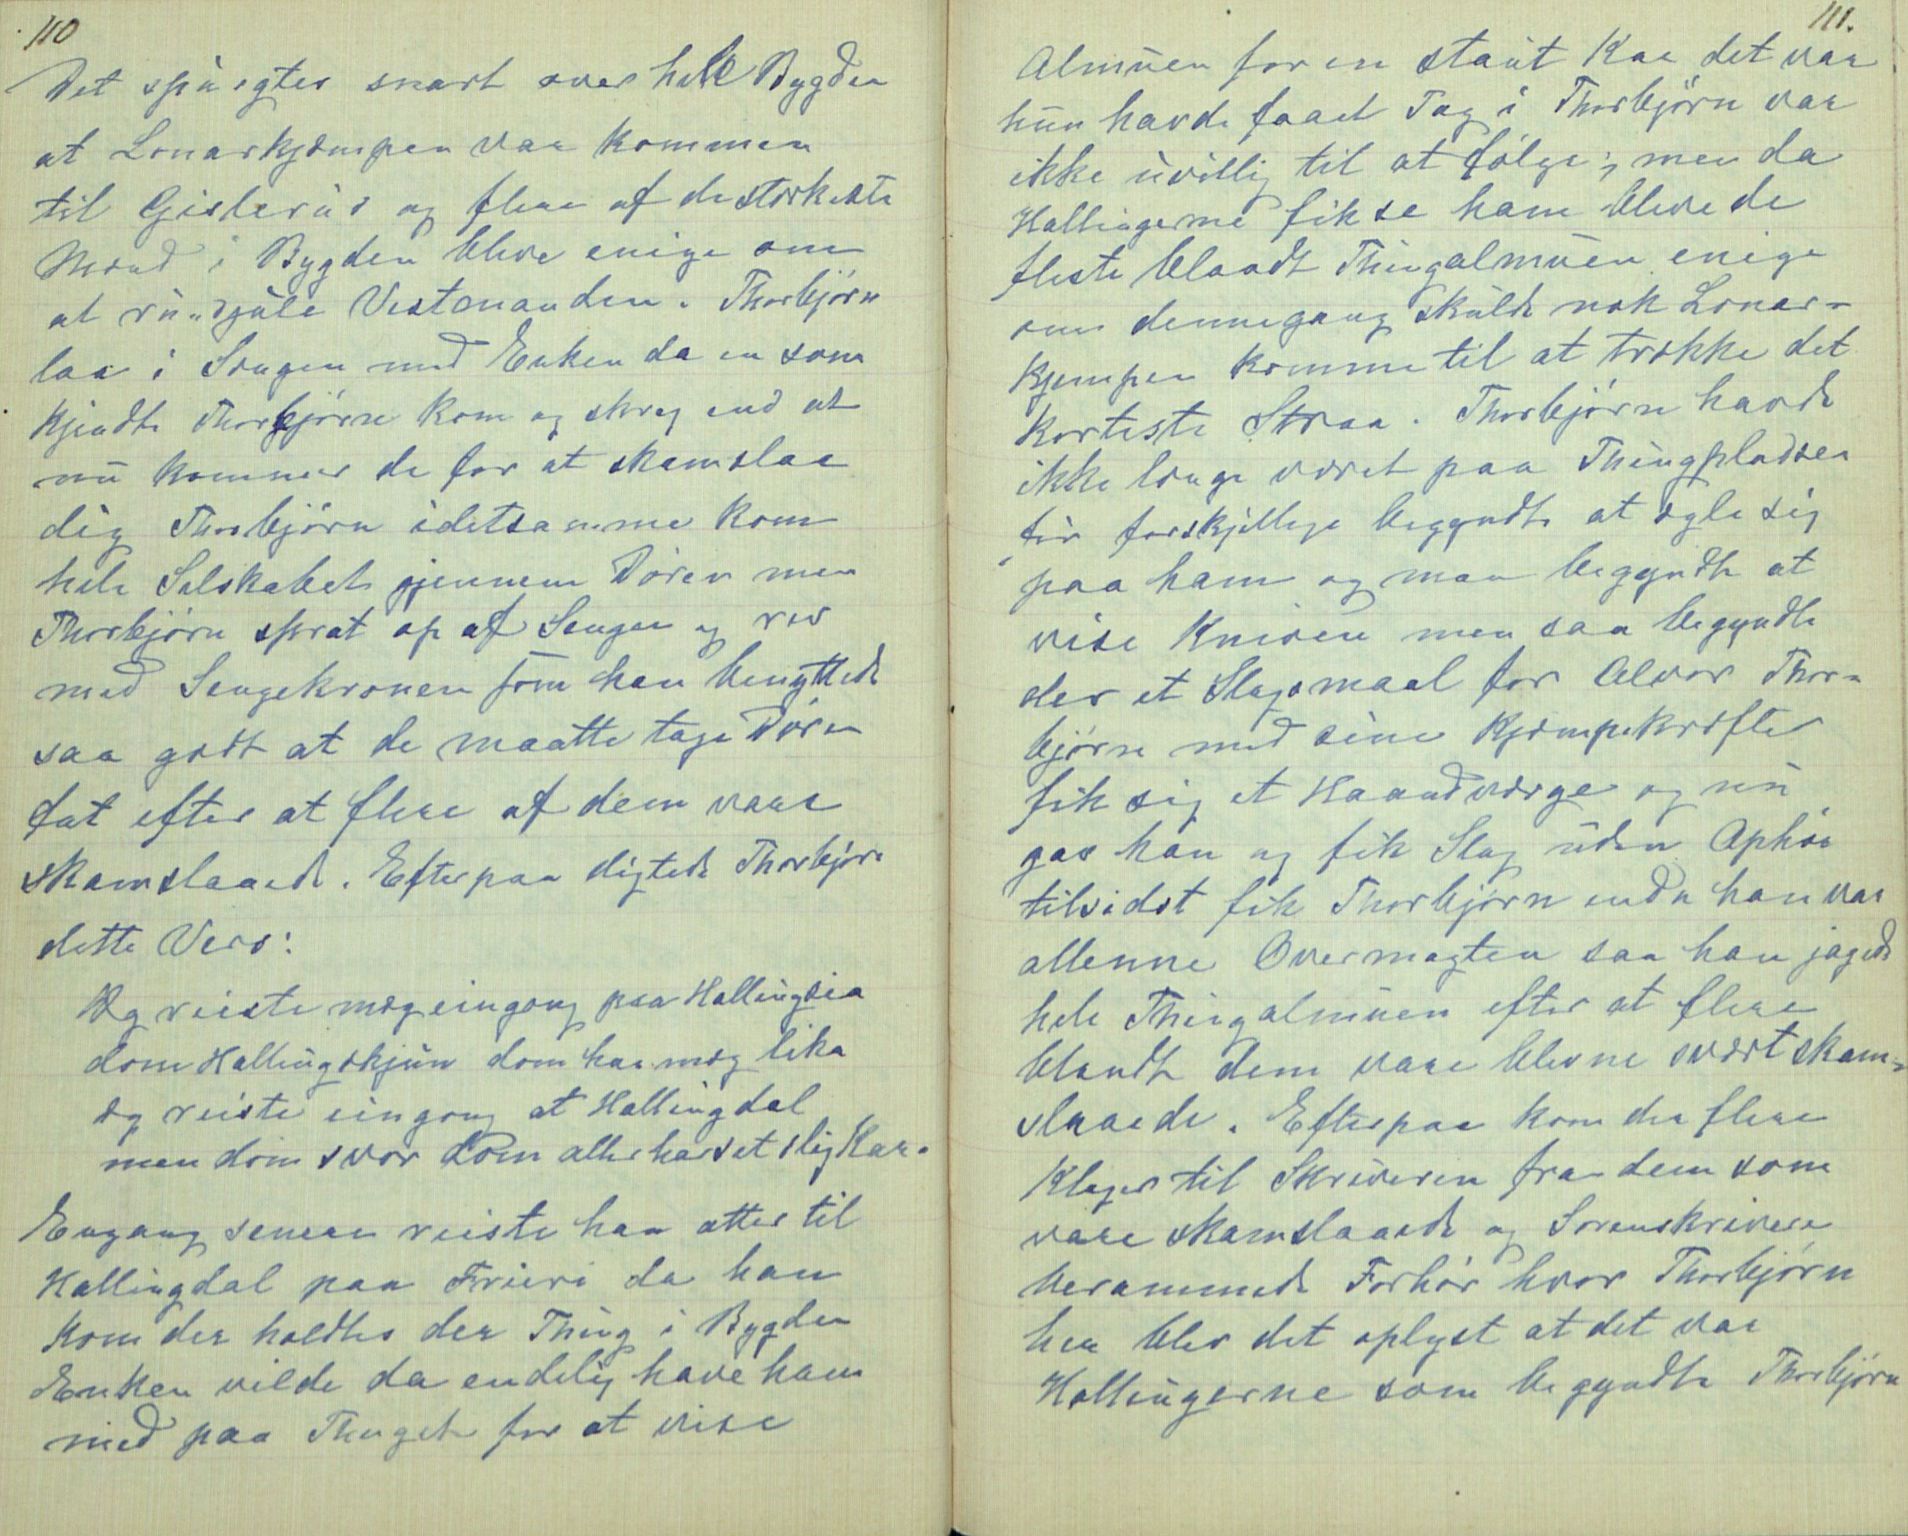 110
Det spurgtes snart over hele Bygden
at Lonarkjæmpen var kommen
til Gislerud og flere af de stærkeste
Mænd i Bygden bleve enige om
at rundjule Vestmanden. Thorbjørn
laa i Sængen med Enken da en som
kjendte Thorbjørn kom og skreg ind at
nu kommer de for at skamslaa
dig Thorbjørn idetsamme kom
hele Selskabet gjennem Døren men
Thorbjørn sprat op af Sengen og rev
med Sengekronen som han benyttede
saa godt at de maatte tage Døren
fat efter at flere af dem vare
skamslaaede. Efterpaa digtede Thorbjørn
dette Vers:
Æg reiste mæg eingong paa Hallingsia
dom Hallingskjun dom har mæg lika
æg reiste eingong at Hallingdal
men dom svor dom aller har set slig Kar.
Engang senere reiste han atter til
Hallingdal paa Frieri da han
kom der holdtes der Thing i Bygden
Enken vilde da endelig have ham
med paa Thinget for at vise
111.
Almuen for en staut Kar det var
hun havde faaet Tag i Thorbjørn var
ikke uvillig til at følge; men da
Hallingerne fik se ham bleve de
fleste blandt Thingalmuen enige
om dennegang skulde nok Lonar-
kjempen komme til at trække det
korteste Straa. Thorbjørn havde
ikke længe været paa Thingpladsen
før forskjellige begyndte at egle sig
paa ham og man begyndte at
vise Kniven men saa begyndte
der et Slagsmaal for Alvor Thor-
bjørn med sine Kjæmpekræfter
fik sig et Haandværge og nu
gav han og fik Slag uden Ophør
tilsidst fik Thorbjørn enda han var
allenne Overmagten saa han jagede
hele Thingalmuen efter at flere
blandt dem vare blevne svært skam-
slaaede. Efterpaa kom der flere
Klager til Skriveren fra dem som
vare skamslaaede og Sorenskriveren
berammede Forhør hvor Thorbjørn
her blev det oplyst at det var
Hallingerne som begyndte Thorbjørn